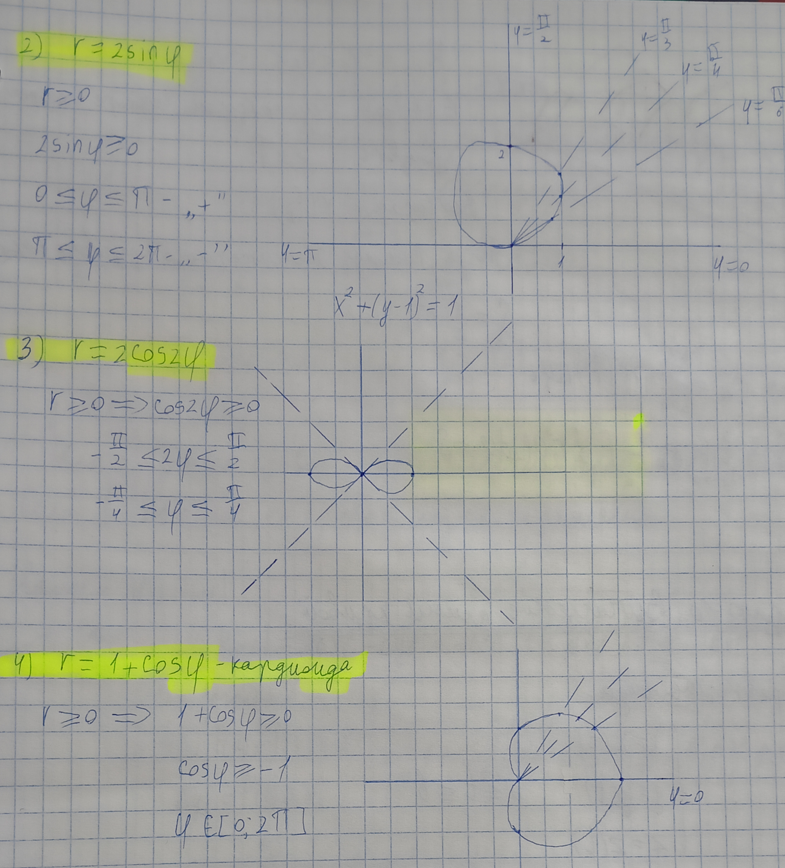 2) r = 2sinφ
r ≥ 0
2sinφ ≥ 0
0 ≤ φ ≤ π - „+"
π ≤ φ ≤ 2π - „-"
φ = π/2
φ = π/3
φ = π/4
φ = π/6
2
1
φ = π
φ = 0
x² + (y-1)² = 1
3) r = 2cos2φ
r ≥ 0 ⟹ cos2φ ≥ 0
-π/2 ≤ 2φ ≤ π/2
-π/4 ≤ φ ≤ π/4
4) r = 1 + cosφ - кардиоида
r ≥ 0 ⟹ 1 + cosφ ≥ 0
cosφ ≥ -1
φ ∈ [0; 2π]
φ = 0